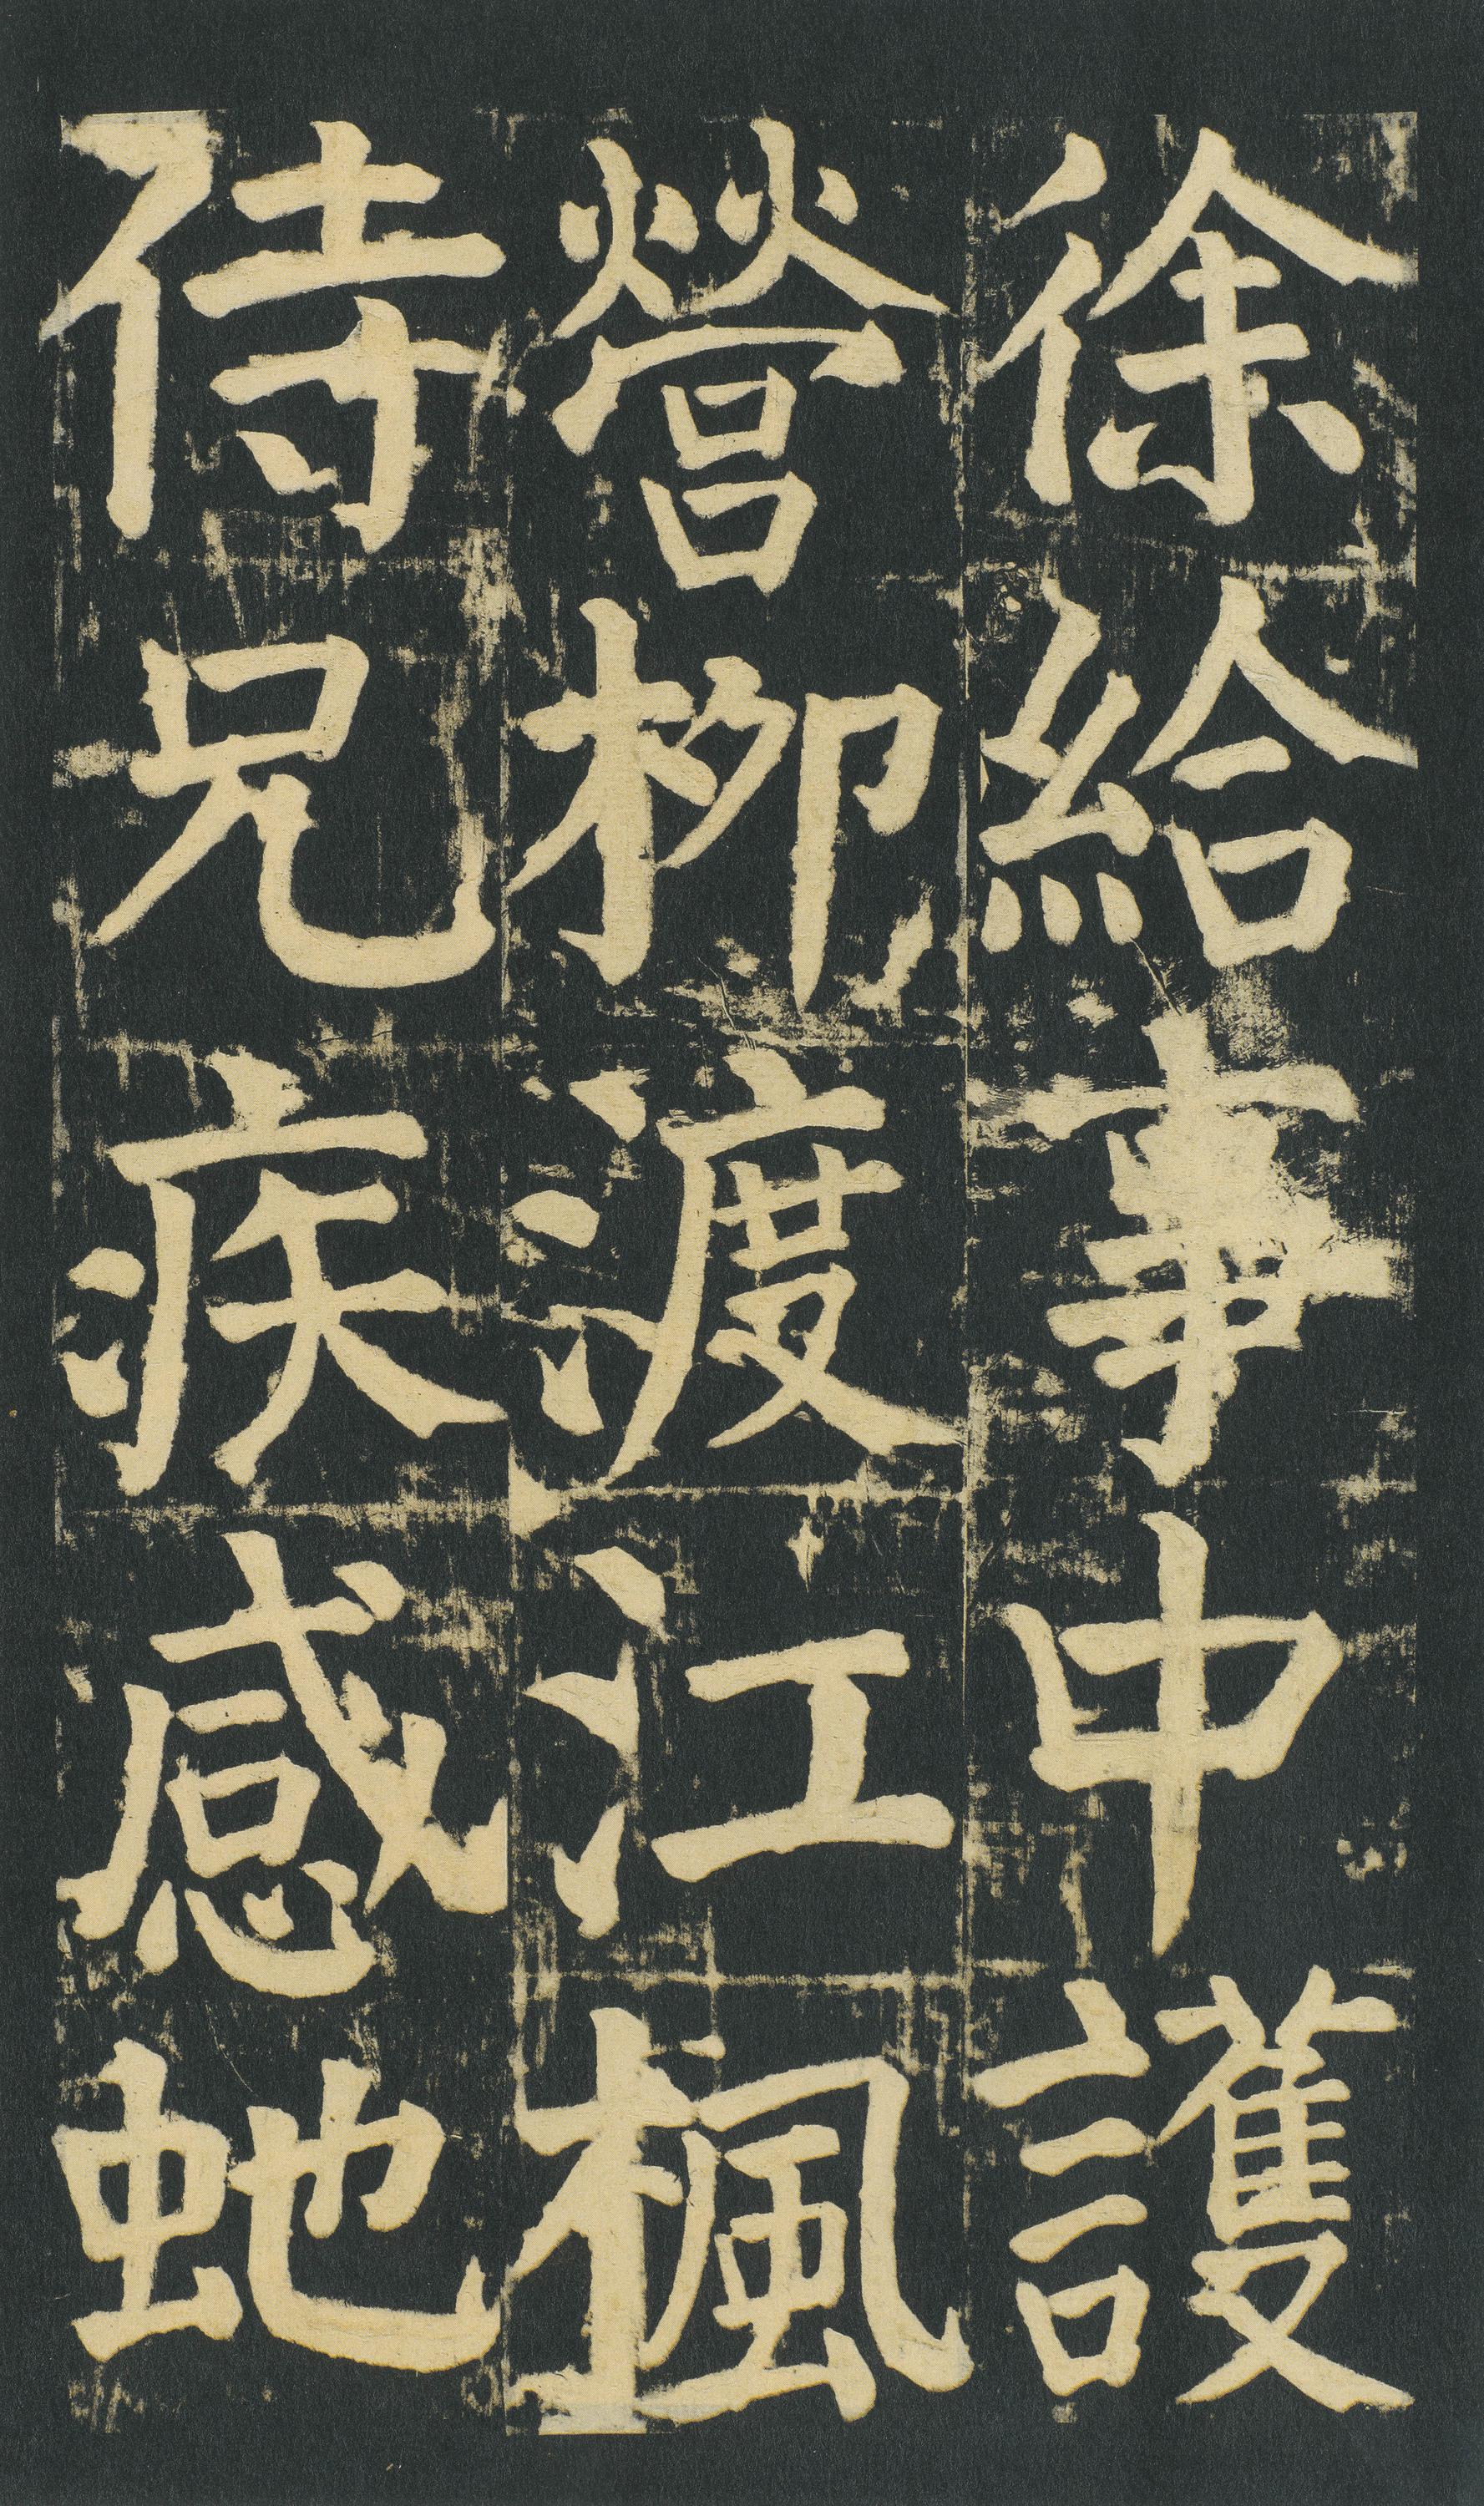 徐給事中護
營柳渡江楓
侍兄疾感虵